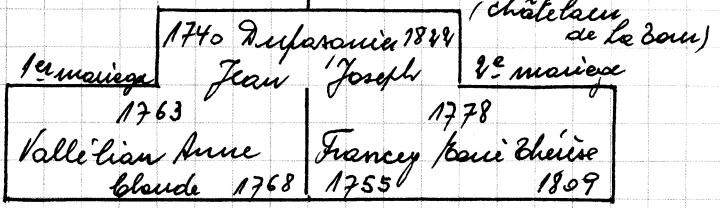 (châtelain
de La Tour)
1740 Dupasquier 1822
Jean Joseph
1er mariage
2e mariage
1763
Vallélian Anne
Claude 1768
1778
Francey Marie Thérèse
1755 1809